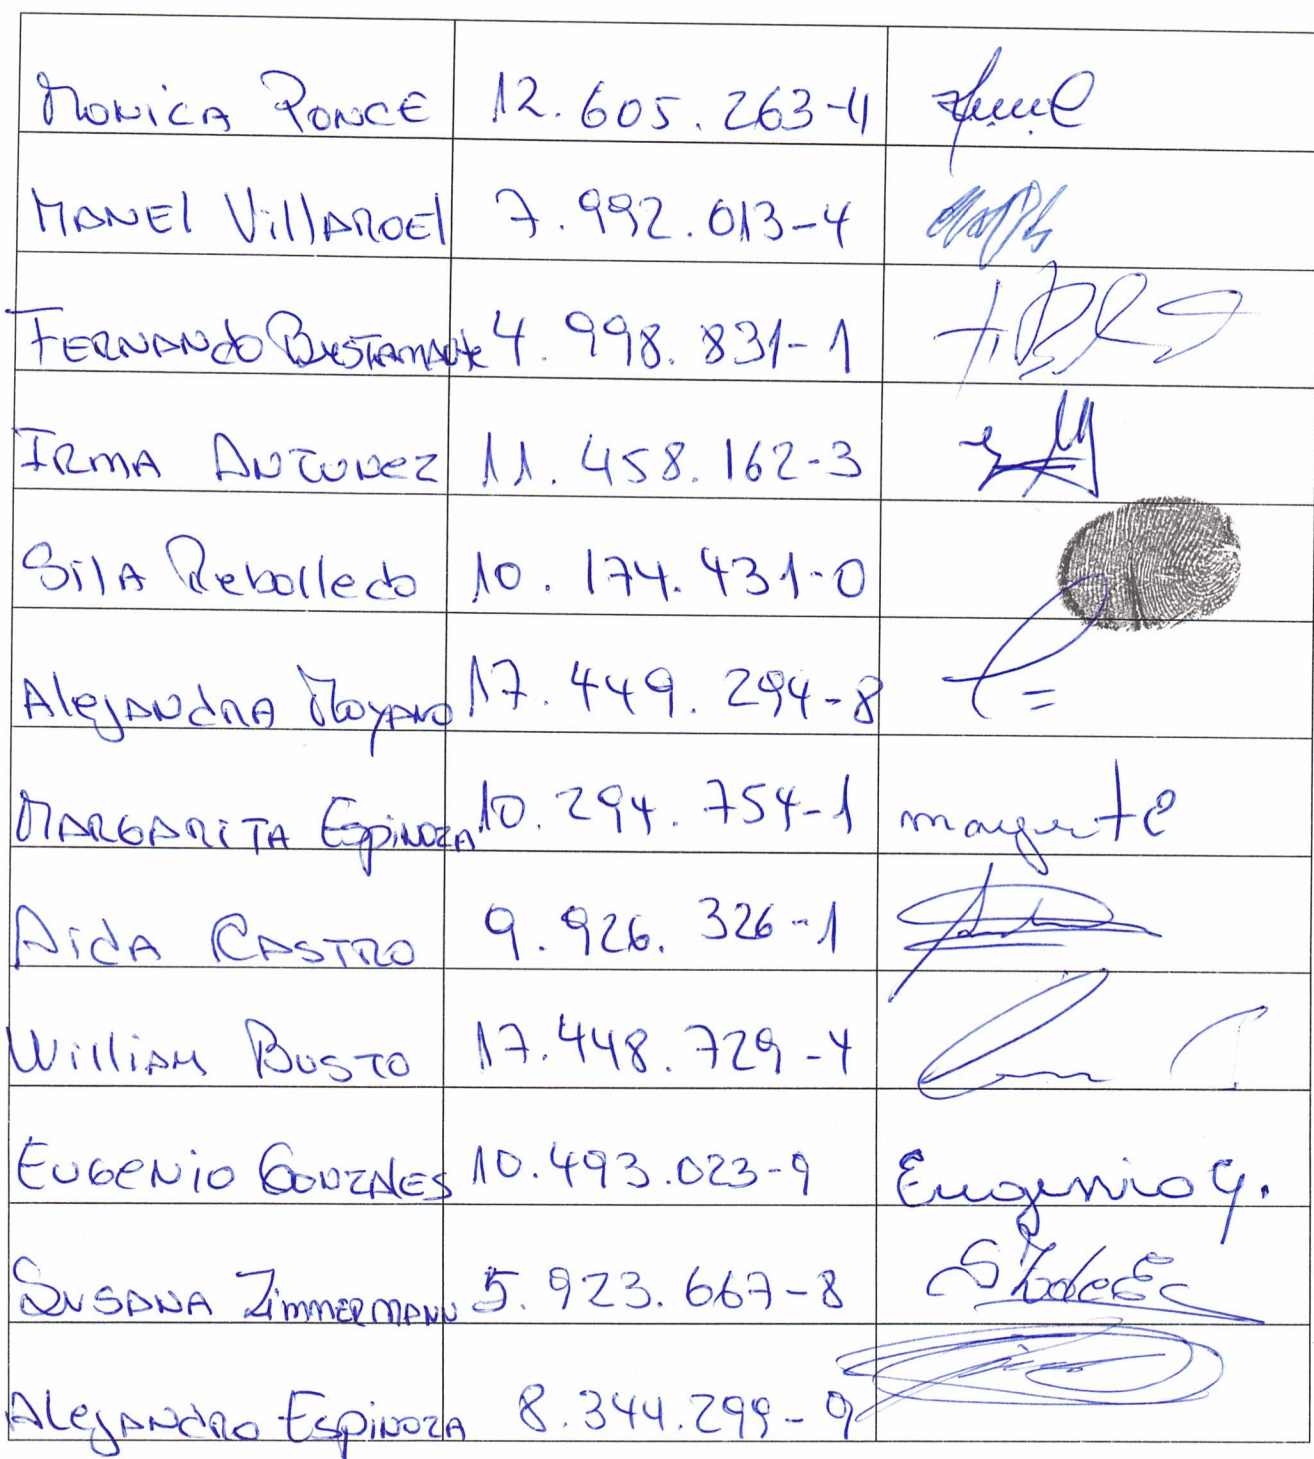 MONICA PONCE 12.605.263-4
MANEl VillAROEl 7.992.013-4
FERNANdO BUSTAMANte 4.998.831-1
IRMA ANTUNEZ 11.458.162-3
SilA Rebolledo 10.174.431-0
AlejANdRA MOYANO 17.449.294-8
MARGARITA EspiNOZA 10.294.754-1 margarita
AidA CASTRO 9.926.326-1
WilliAM BUSTO 17.448.729-4
EUGENiO GONZALES 10.493.023-9 Eugenio G.
SUSANA ZimmERMANN 5.923.667-8
AlejANdRO EspiNOZA 8.344.299-9